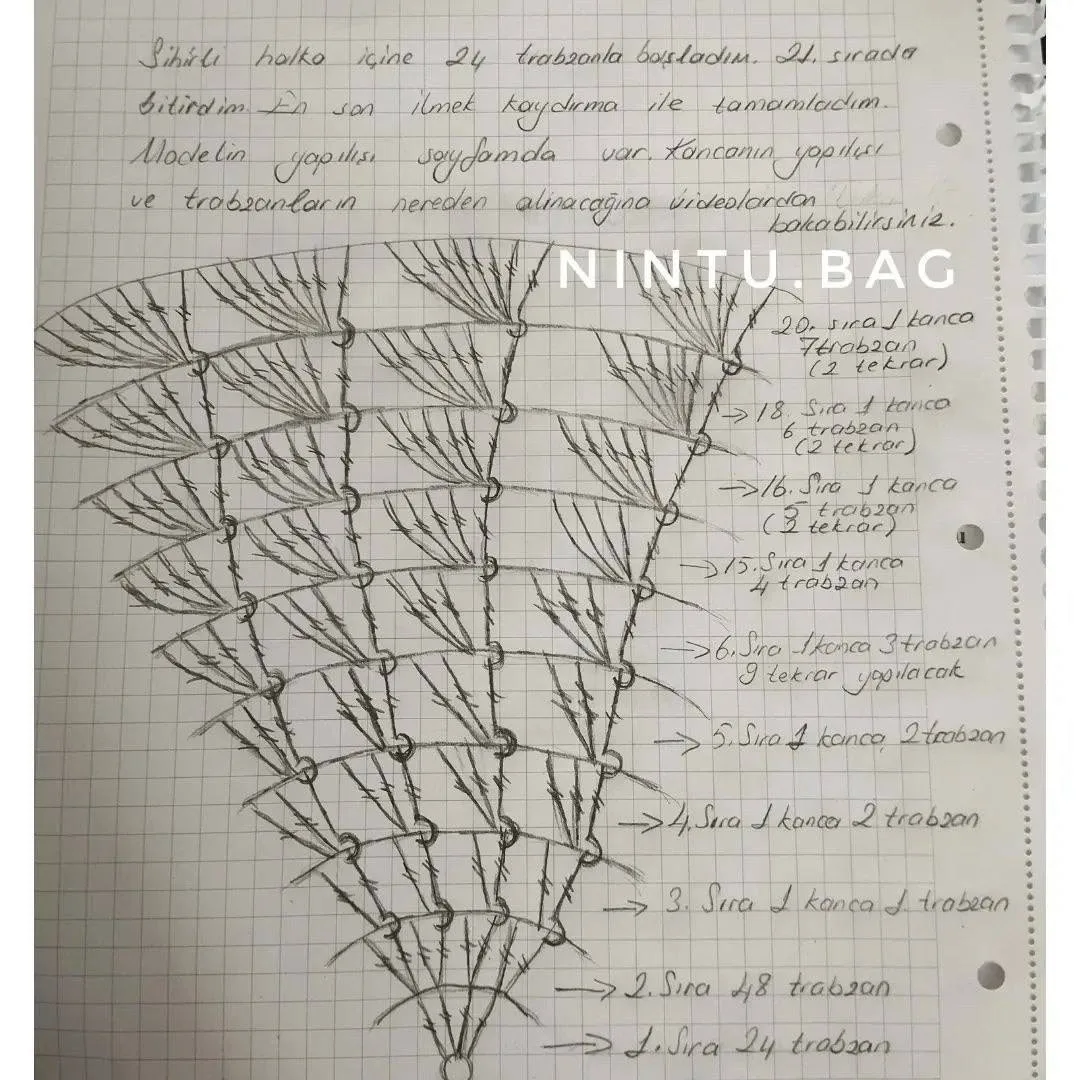 Sihirli halka içine 24 trabzanla başladım. 21. sırada
bitirdim. En son ilmek kaydırma ile tamamladım.
Modelin yapılışı sayfamda var. Kancanın yapılışı
ve trabzanların nereden alinacağına videolardan
bakabilirsiniz.
NINTU.BAG
20. sıra 1 kanca
7 trabzan
(2 tekrar)
→ 18. Sıra 1 kanca
6 trabzan
(2 tekrar)
→ 16. Sıra 1 kanca
5 trabzan
(2 tekrar)
→ 15. Sıra 1 kanca
4 trabzan
→ 6. Sıra 1 kanca 3 trabzan
9 tekrar yapılacak
→ 5. Sıra 1 kanca, 2 trabzan
→ 4. Sıra 1 kanca 2 trabzan
→ 3. Sıra 1 kanca 1 trabzan
→ 2. Sıra 48 trabzan
→ 1. Sıra 24 trabzan